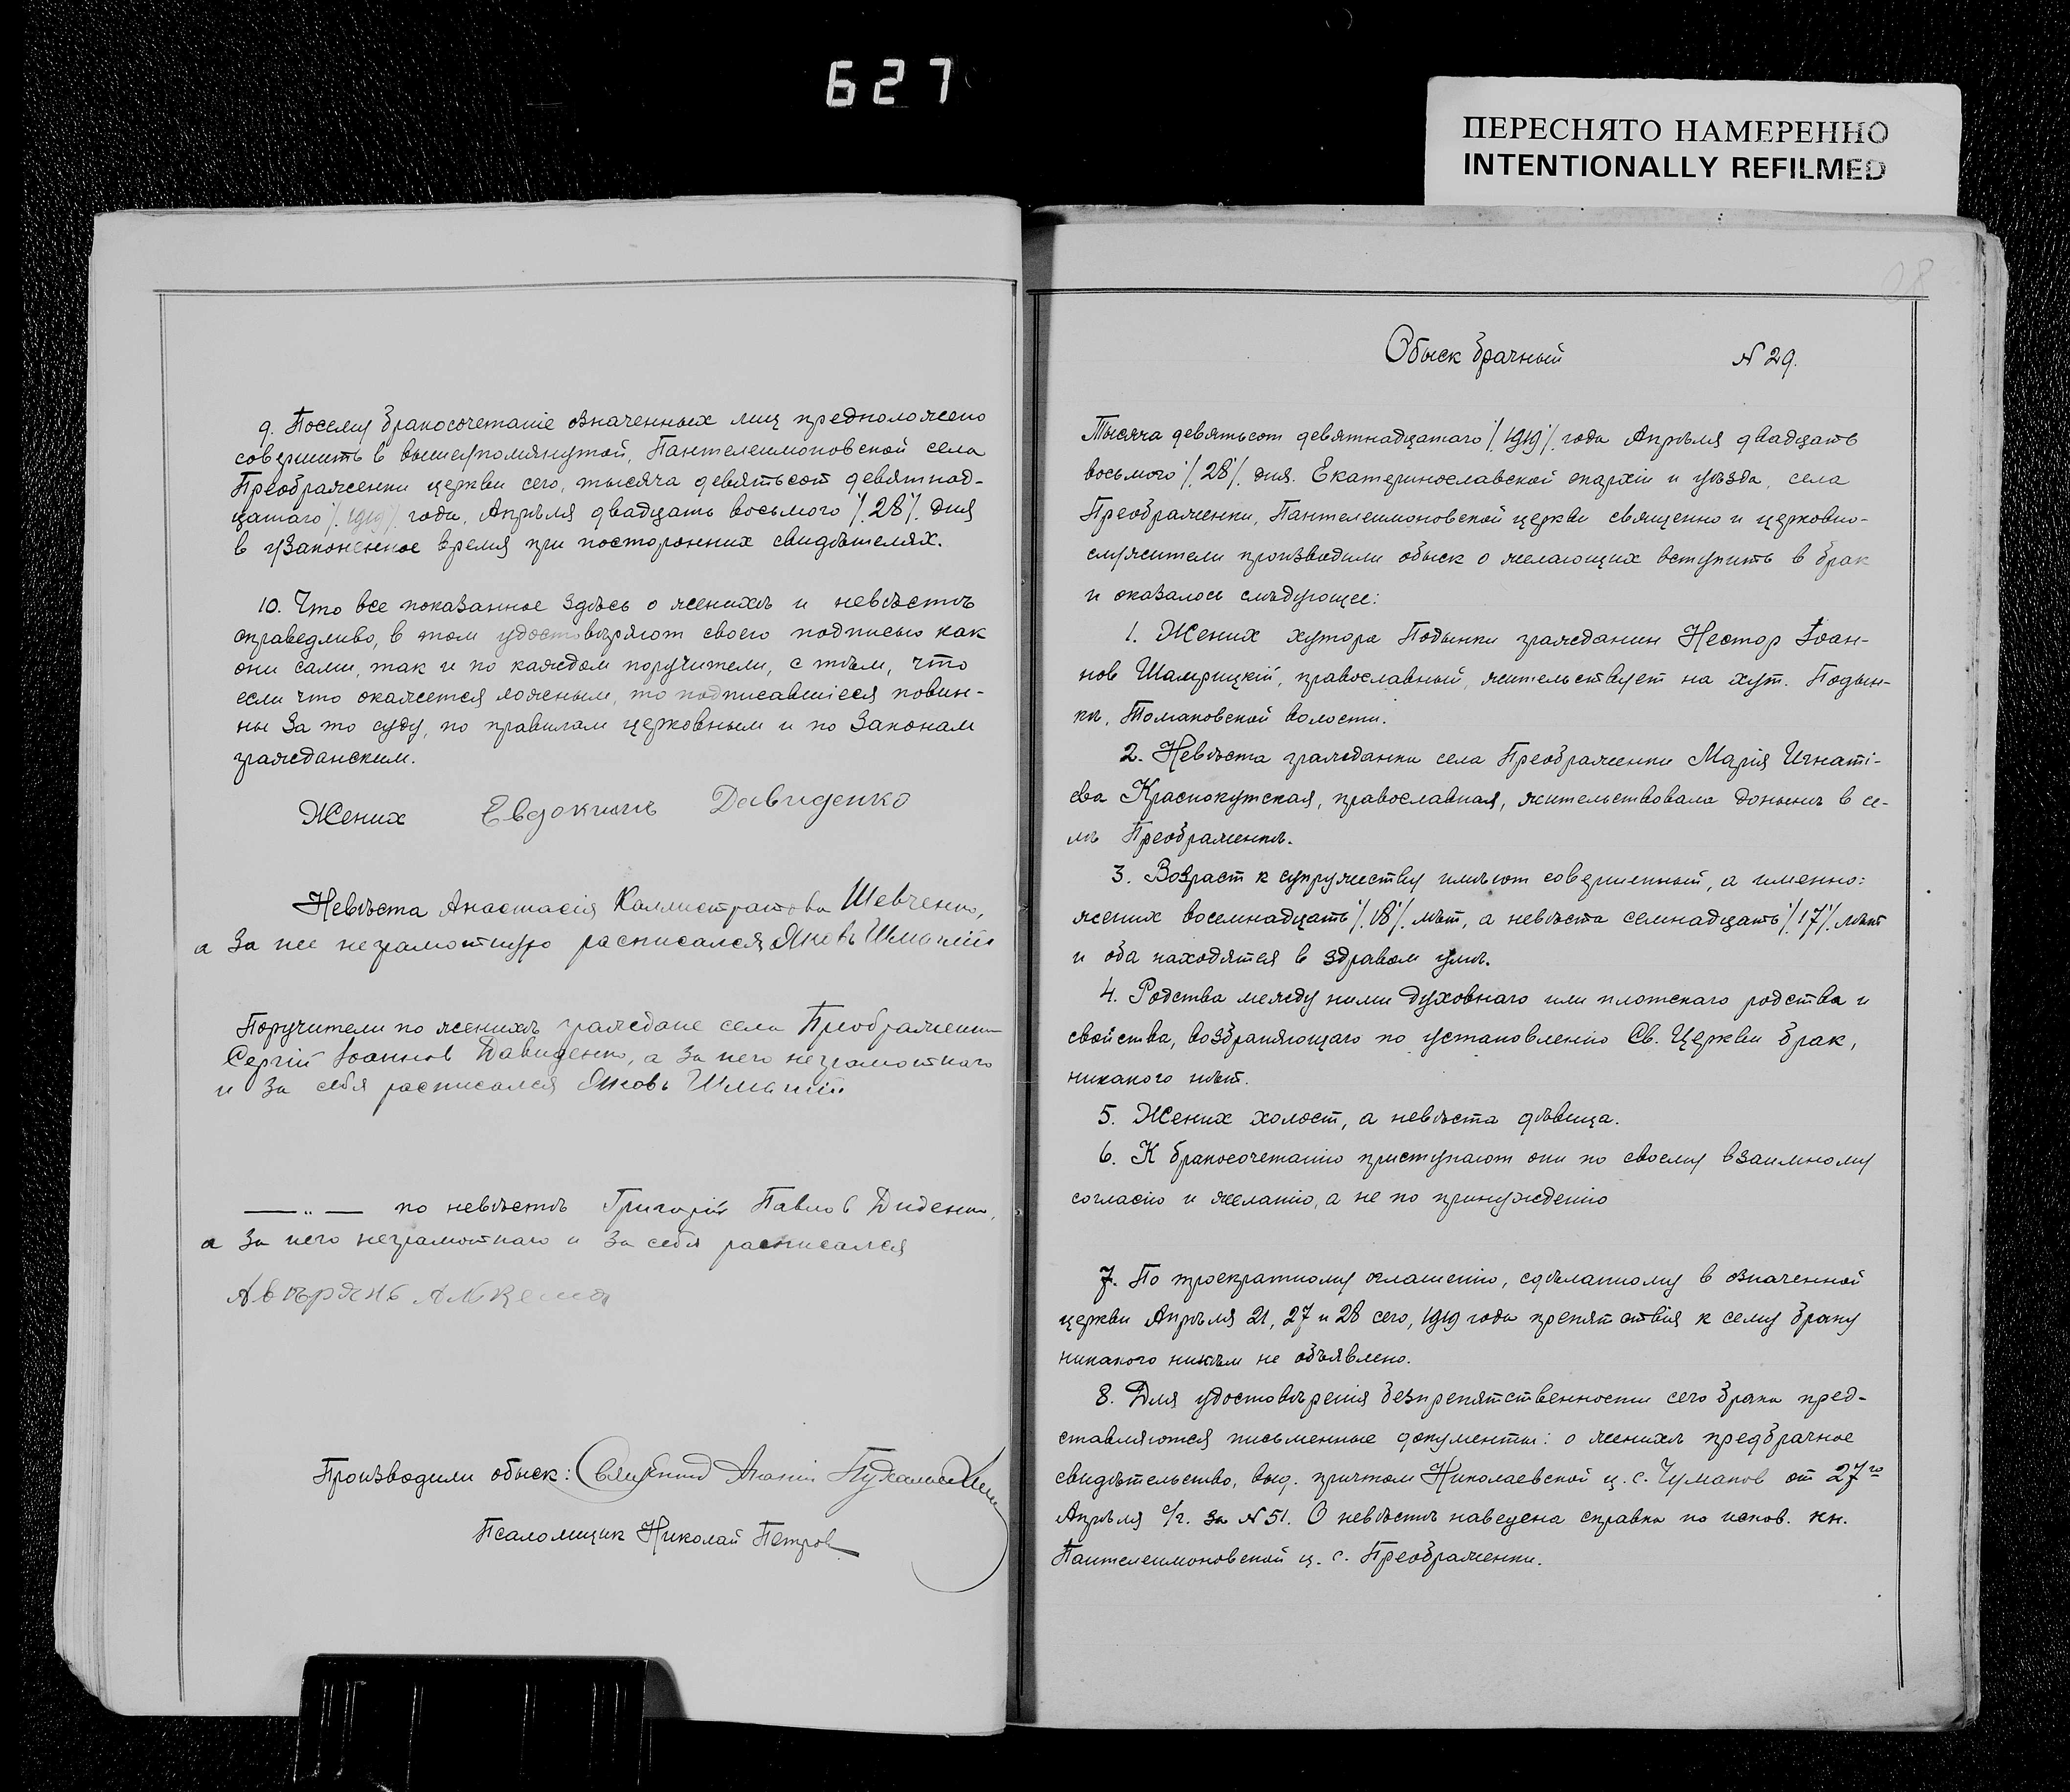 627
ПЕРЕСНЯТО НАМЕРЕННО
INTENTIONALLY REFILMED
9. Посему бракосочетаніе означенных лиц предположено
совершить в вышеупомянутой, Пантелеимоновской села
Преображенки церкви сего, тысяча девятьсот девятнад-
цатаго /.1919/. года, Апрѣля двадцать восьмого /.28/. дня
в узаконенное время при посторонних свидѣтелях.
10. Что все показанное здѣсь о женихѣ и невѣстѣ
справедливо, в том удостовѣряют своею подписью как
они сами, так и по каждом поручители, с тѣм, что
если что окажется ложным, то подписавшіеся повин-
ны за то суду, по правилам церковным и по законам
гражданским.
Жених Евдокимъ Давиденко
Невѣста Анастасія Каллистратова Шевченко,
а за нее неграмотную расписался Яковъ
Поручители по женихѣ граждане села Преображенки
Сергій Іоаннов Давиденко, а за него неграмотнаго
и за себя расписался Яковъ
—„— по невѣстѣ Григорій Павлов Диденко,
а за него неграмотнаго и за себя расписался
Производили обыск: Священник
Псаломщик Николай Петров
Обыск брачный N 29.
Тысяча девятьсот девятнадцатаго /.1919/. года Апрѣля двадцать
восьмого /.28/. дня. Екатеринославской епархіи и уѣзда, села
Преображенки, Пантелеимоновской церкви священно и церковно-
служители производили обыск о желающих вступить в брак
и оказалось слѣдующее:
1. Жених хутора Подынки гражданин Нестор Іоан-
нов Шамрицкій, православный, жительствует на хут. Подын-
кѣ, Томаковской волости.
2. Невѣста гражданка села Преображенки Марія Игнаті-
ева Краснокутская, православная, жительствовала донынѣ в се-
лѣ Преображенкѣ.
3. Возраст к супружеству имѣют совершенный, а именно:
жених восемнадцать /.18/. лѣт, а невѣста семнадцать /.17/. лѣт
и оба находятся в здравом умѣ.
4. Родства между ними духовнаго или плотскаго родства и
свойства, возбраняющаго по установленію Св. Церкви брак,
никакого нѣт.
5. Жених холост, а невѣста дѣвица.
6. К бракосочетанію приступают они по своему взаимному
согласію и желанію, а не по принужденію
7. По троекратному оглашенію, сдѣланному в означенной
церкви Апрѣля 21, 27 и 28 сего, 1919 года препятствія к сему браку
никакого никѣм не объявлено.
8. Для удостовѣренія безпрепятственности сего брака пред-
ставляются письменные документы: о женихѣ предбрачное
свидѣтельство, выд. причтом Николаевской ц. с. Чумаков от 27го
Апрѣля с/г. за N 51. О невѣстѣ наведена справка по испов. кн.
Пантелеимоновской ц. с. Преображенки.